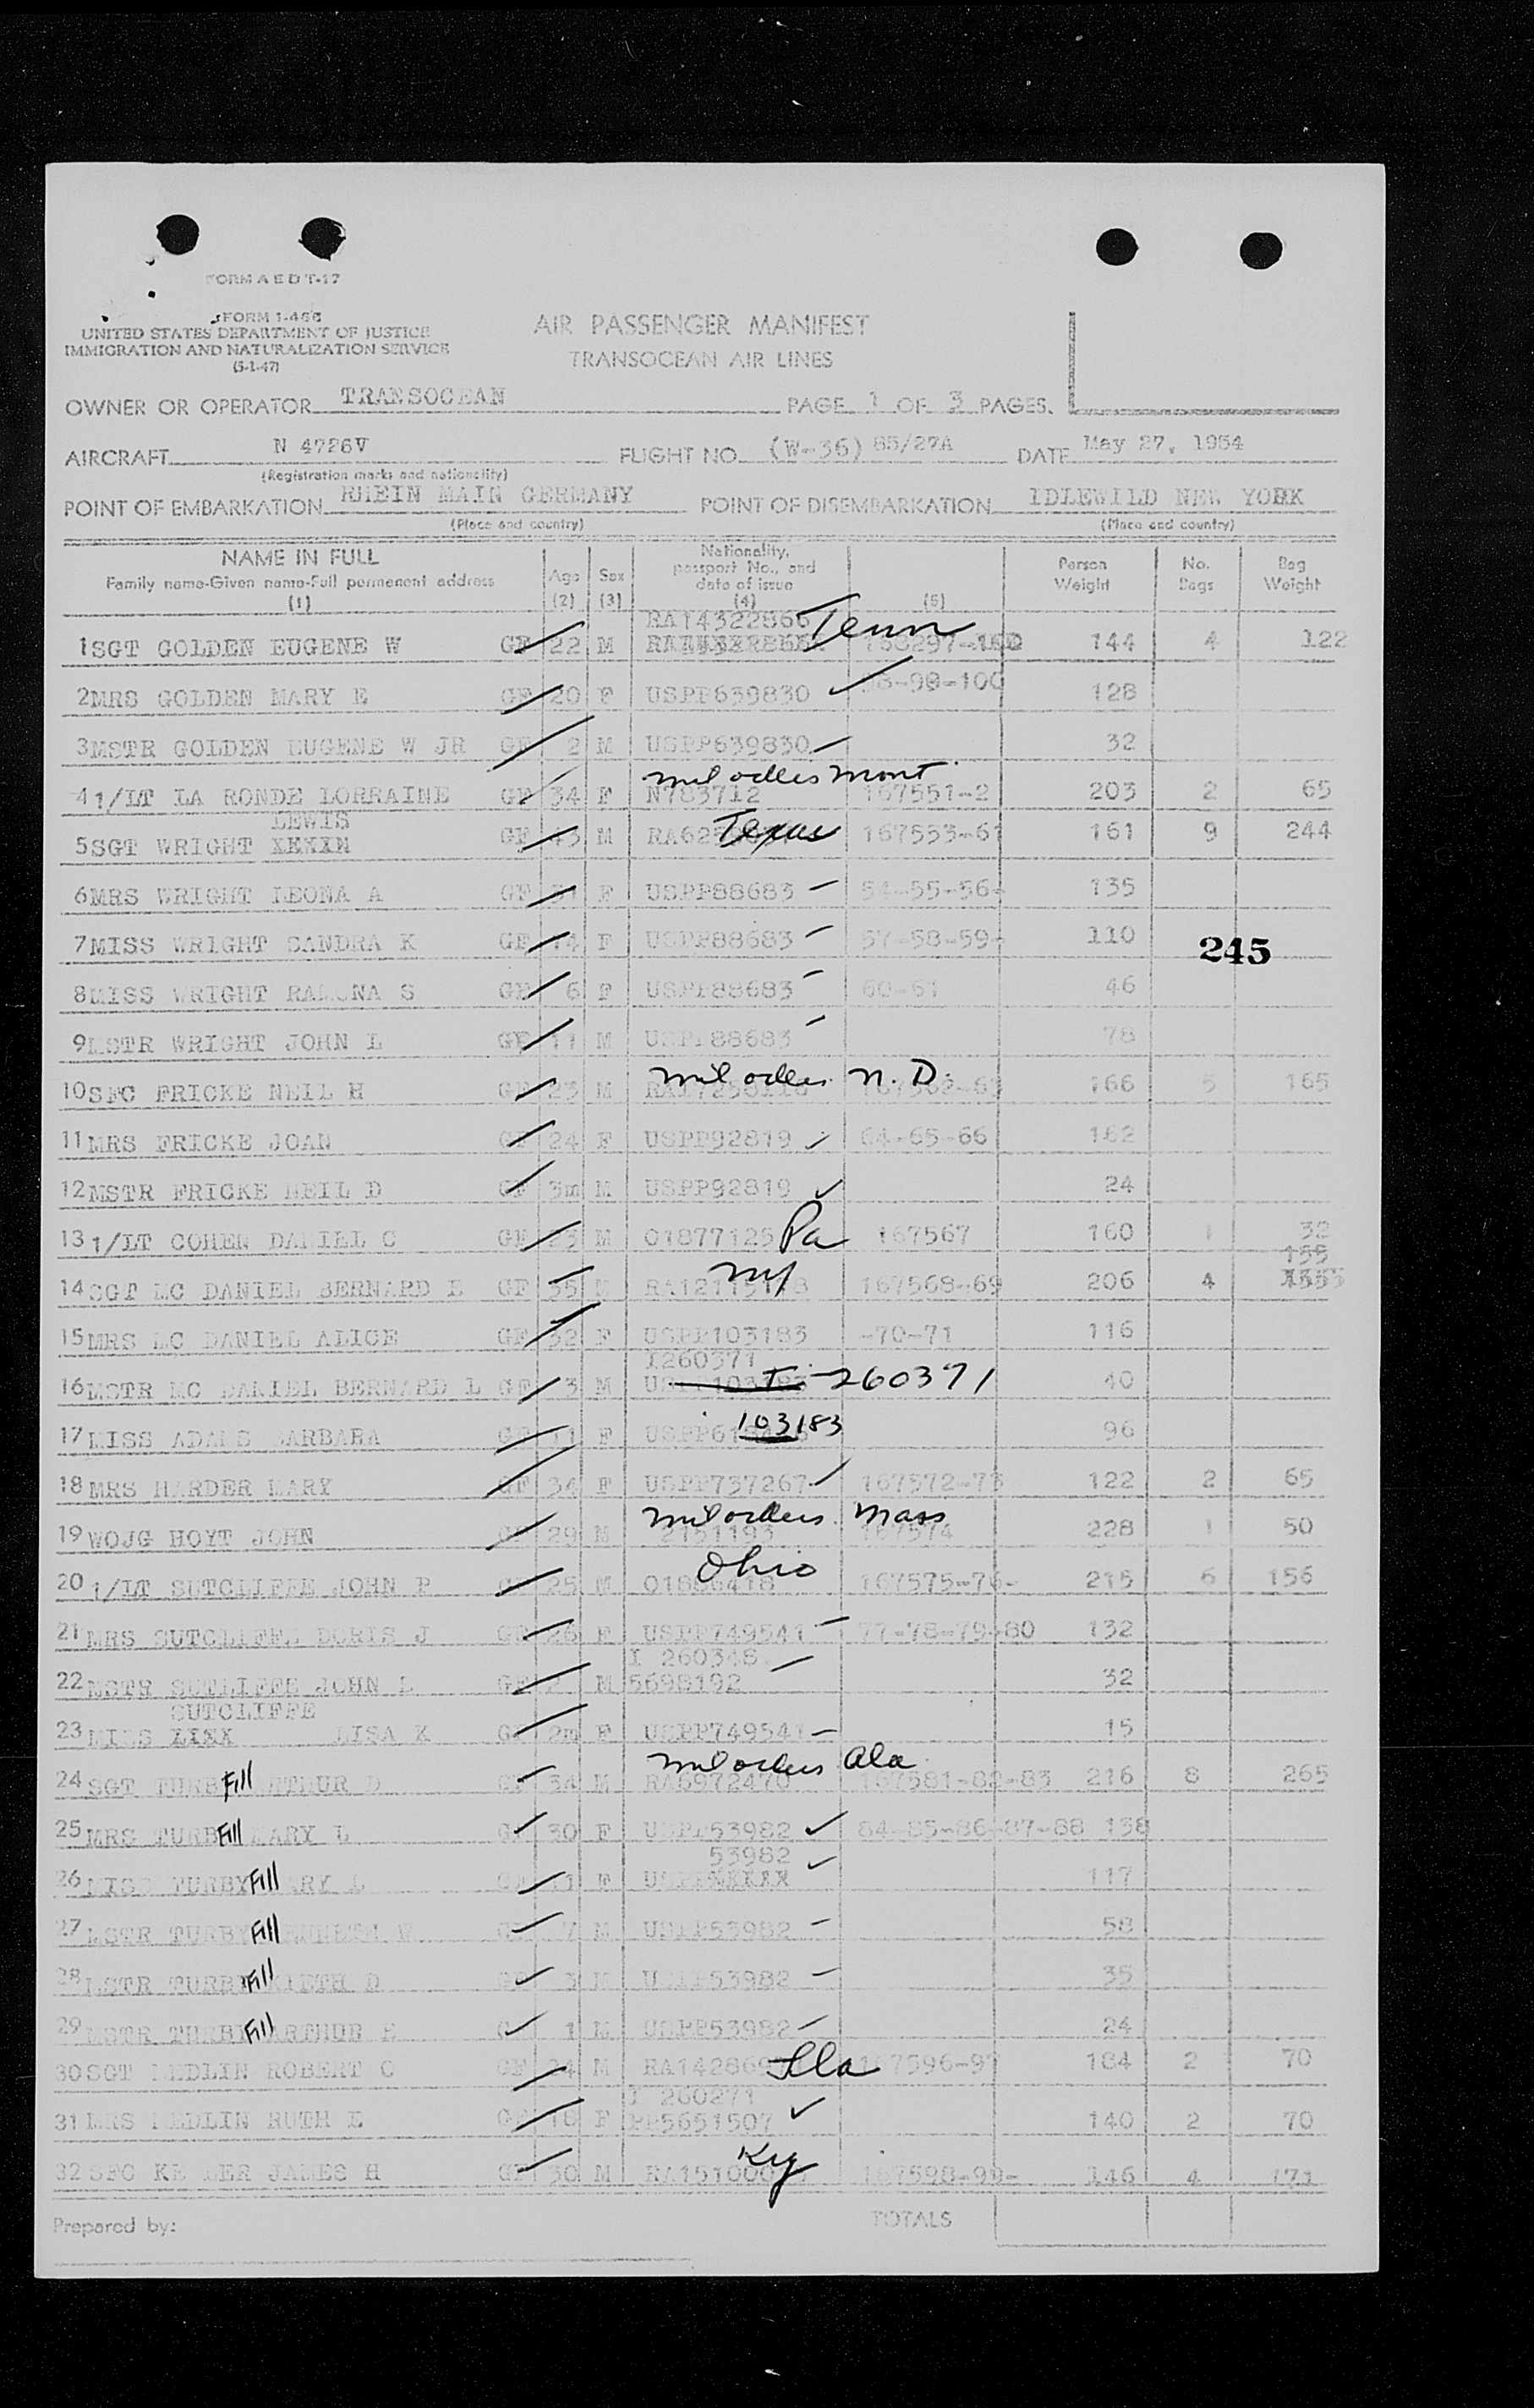 FORM A E D T-17
FORM I-466
UNITED STATES DEPARTMENT OF JUSTICE
IMMIGRATION AND NATURALIZATION SERVICE
(5-1-47)
AIR PASSENGER MANIFEST
TRANSOCEAN AIR LINES
OWNER OR OPERATOR TRANSOCEAN PAGE 1 OF 3 PAGES.
AIRCRAFT N 4726V FLIGHT NO. (W-36) 85/27A DATE May 27, 1954
(Registration marks and nationality)
POINT OF EMBARKATION RHEIN MAIN GERMANY POINT OF DISEMBARKATION IDLEWILD NEW YORK
(Place and country) (Place and country)
NAME IN FULL Age Sex Nationality, passport No., and date of issue Person Weight No. Bags Bag Weight
Family name-Given name-Full permanent address
(1) (2) (3) (4) (5)
RA14322866 Tenn
1 SGT GOLDEN EUGENE W GF 22 M 144 4 122
2 MRS GOLDEN MARY E GF 20 F USPP639830 98-99-100 128
3 MSTR GOLDEN EUGENE W JR GF 2 M USPP639830 32
mil orders Mont
4 1/LT LA RONDE LORRAINE GF 34 F N783712 167551-2 203 2 65
LEWIS
5 SGT WRIGHT GF 43 M Texas 167553-61 161 9 244
6 MRS WRIGHT LEONA A GF F USPP88683 54-55-56- 135
7 MISS WRIGHT SANDRA K GF 14 F USPP88683 57-58-59- 110
245
8 MISS WRIGHT RAMONA S GF 6 F USPP88683 60-61 46
9 MSTR WRIGHT JOHN L GF 11 M USPP88683 78
mil orders N. D.
10 SFC FRICKE NEIL H GF 23 M 167562-63 166 5 165
11 MRS FRICKE JOAN GF 24 F USPP92819 64-65-66 162
12 MSTR FRICKE NEIL D GF 3m M USPP92819 24
13 1/LT COHEN DANIEL C GF 23 M O1877125 Pa 167567 160 1 32
155
14 SGT MC DANIEL BERNARD L GF 35 M NY 167568-69 206 4
15 MRS MC DANIEL ALICE GF 32 F USPP103183 -70-71 116
I260371
16 MSTR MC DANIEL BERNARD L GF 3 M I-260371 40
17 MISS ADAMS BARBARA GF 11 F 103183 96
18 MRS HARDER MARY GF 34 F USPP737267 167572-73 122 2 65
mil orders Mass
19 WOJG HOYT JOHN GF 29 M 2151193 167574 228 1 50
20 1/LT SUTCLIFFE JOHN P GF 25 M Ohio O1886418 167575-76- 215 6 156
21 MRS SUTCLIFFE DORIS J GF 26 F USPP749541 77-78-79-80 132
I 260348
22 MSTR SUTLIFFE JOHN L GF 2 M 5698192 32
SUTCLIFFE
23 MISS LISA K GF 2m F USPP749541 15
mil orders Ala
24 SGT TURBYFill ARTHUR D GF 34 M RA6972470 167581-82-83 216 8 265
25 MRS TURBYFill MARY L GF 30 F USPP53982 84-85-86-87-88 138
53982
26 MISS TURBYFill MARY L GF 11 F 117
27 MSTR TURBYFill KENNETH W GF 7 M USPP53982 58
28 MSTR TURBYFill KIETH D GF 3 M USPP53982 35
29 MSTR TURBYFill ARTHUR E GF 1 M USPP53982 24
30 SGT MEDLIN ROBERT C GF 24 M Fla 167596-97 184 2 70
I 260271
31 MRS MEDLIN RUTH E GF 18 F PP5651507 140 2 70
32 SFC JAMES H GF 30 M Ky 167598-99- 146 4 171
Prepared by: TOTALS